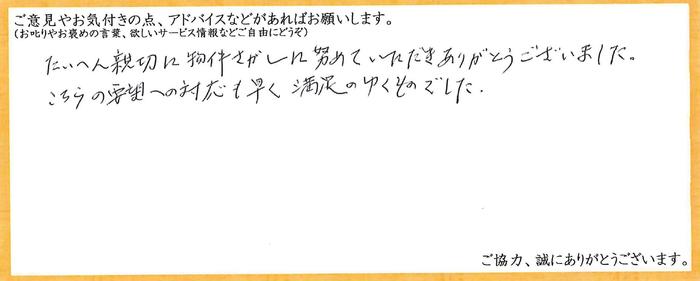 ご意見やお気付きの点、アドバイスなどがあればお願いします。
(お叱りやお褒めの言葉、欲しいサービス情報などご自由にどうぞ)
たいへん親切に物件さがしに努めていただきありがとうございました。
こちらの要望への対応も早く満足のゆくものでした.
ご協力、誠にありがとうございます。